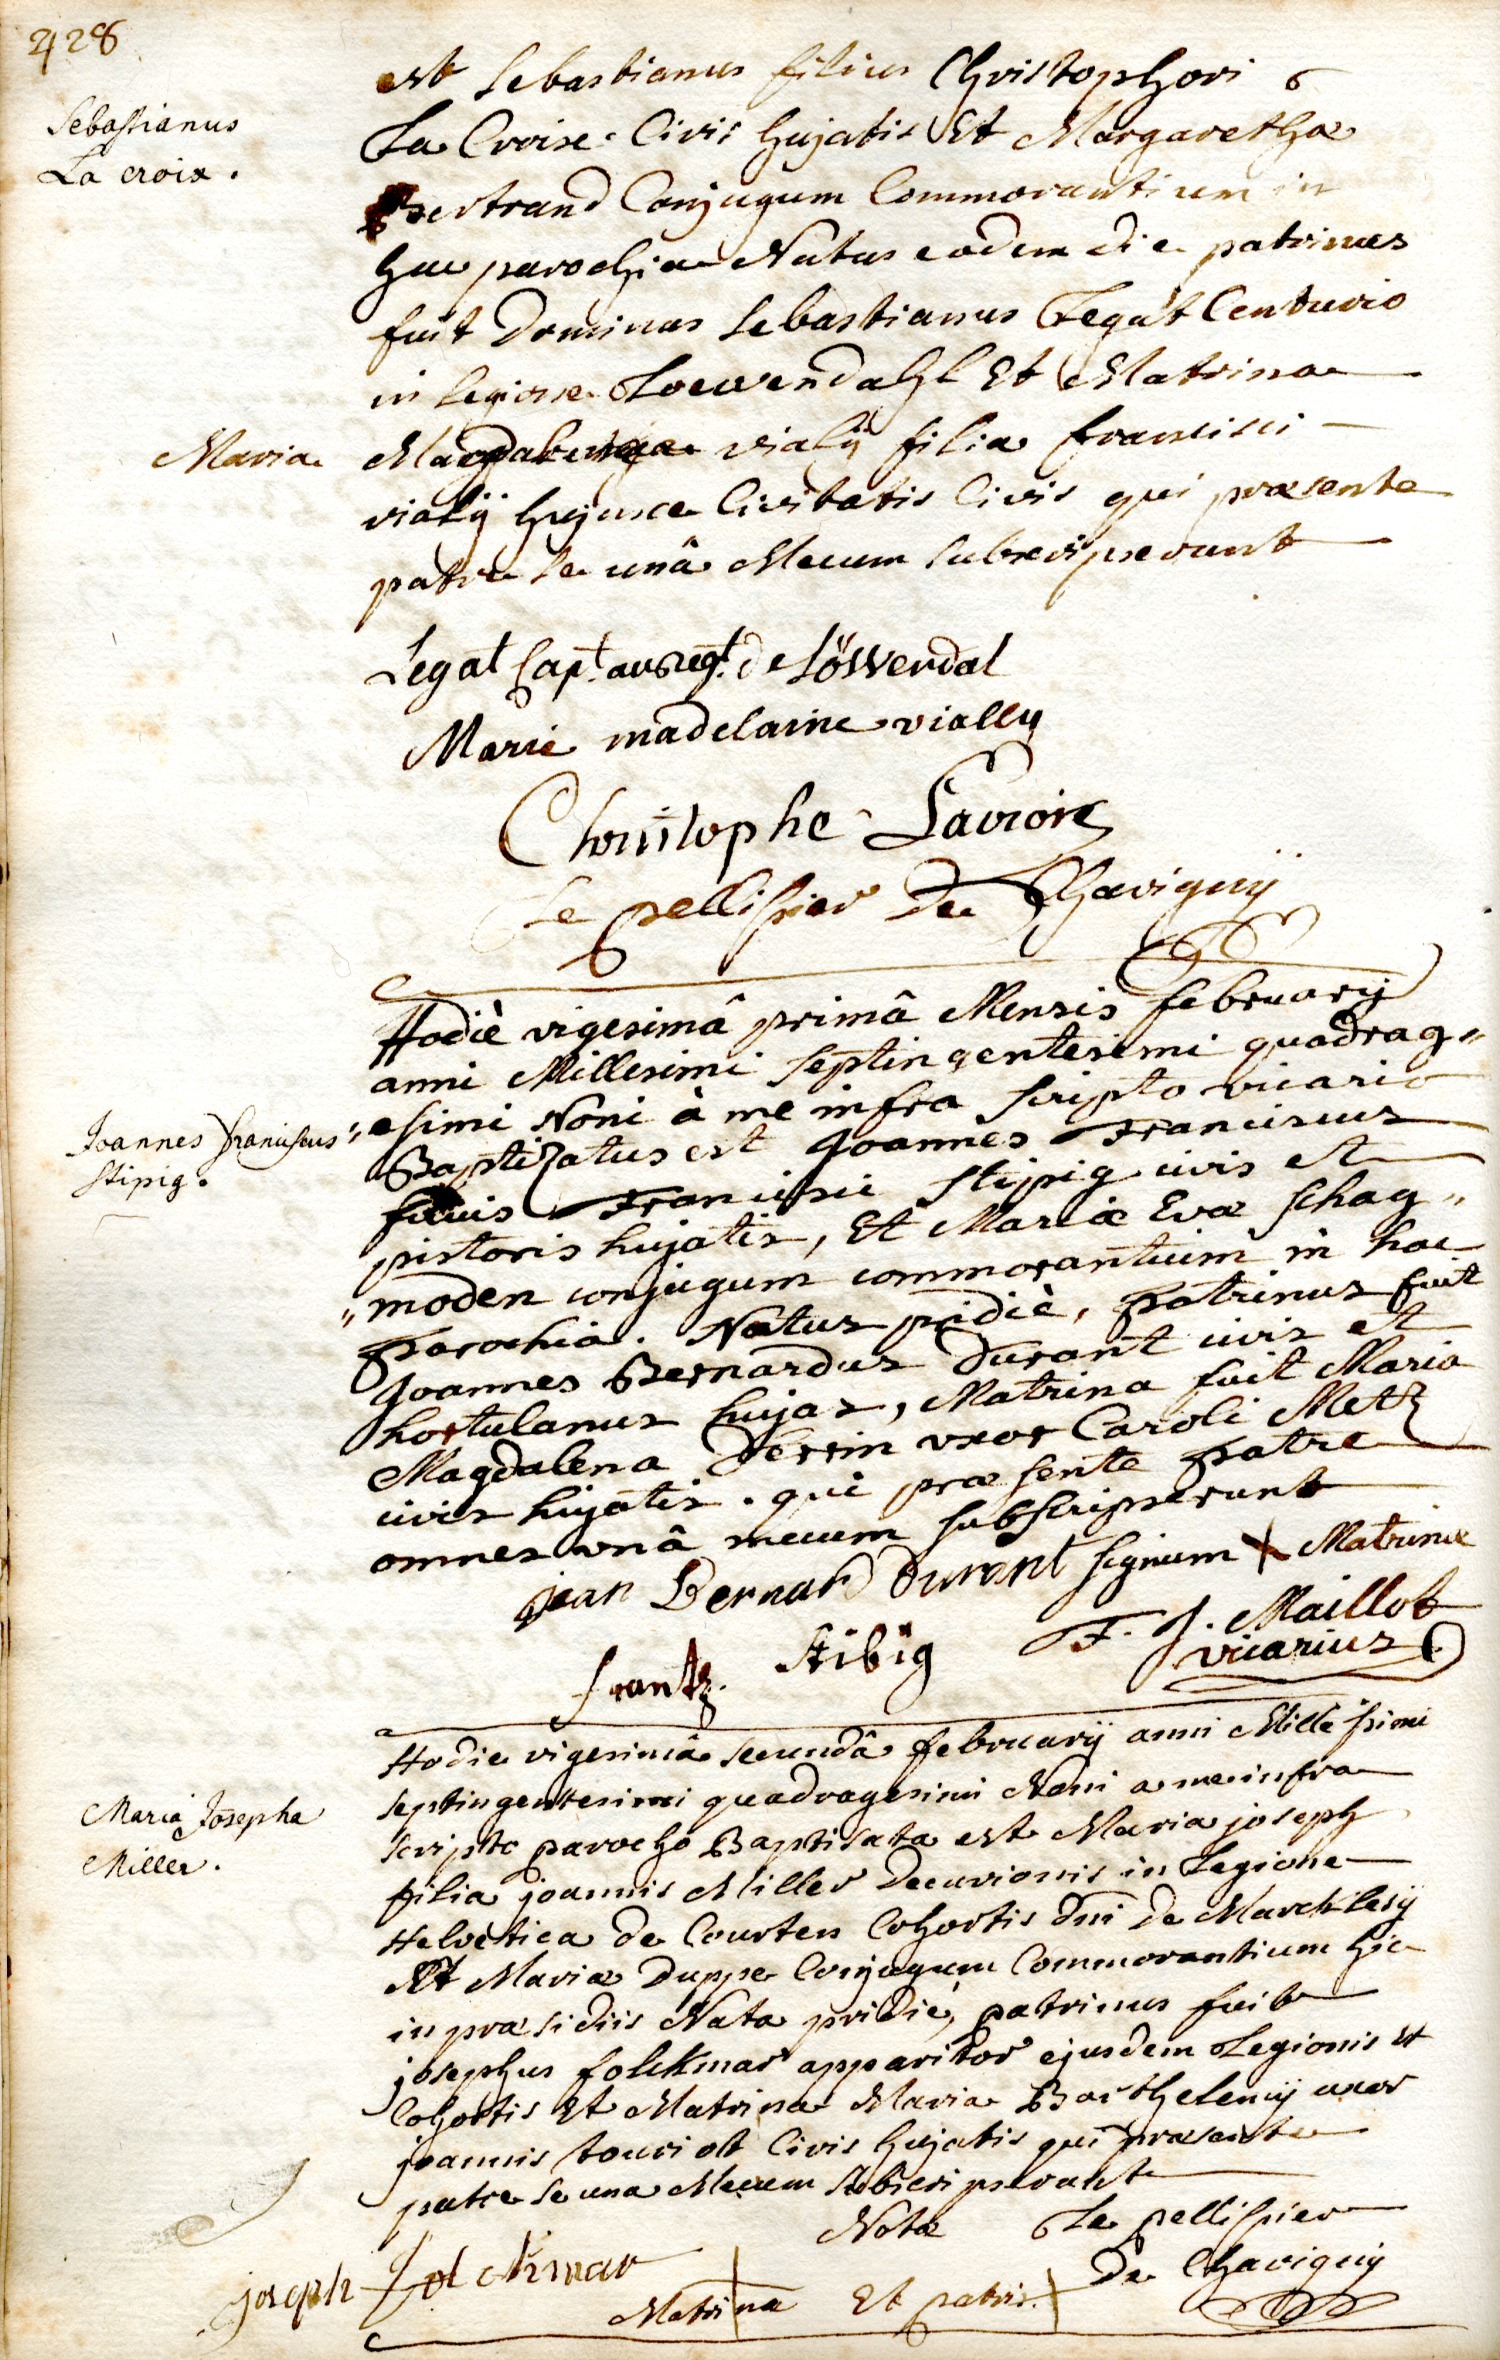 428
est Sebastianus filius Christophori
Sebastianus
La croix.
La Croise Civis hujatis Et Margarethæ
Bertrand Conjugum Commorantium in
hac parochia Natus eodem die patrinus
fuit Dominus Sebastianus Legat Centurio
in legione Loewendahl Et Matrina
Maria Magdalena vialÿ filia francisci
vialÿ hujusce Civitatis Civis qui præsente
patre se unâ Mecum subscripserunt
Legat Capt. au Regt. de Löwendal
Marie madelaine vially
Christophe Lacroix
Le pellissier De Chavignÿ
Hodiè vigesimâ primâ Mensis februarÿ
anni Millesimi septingentesimi quadrag„
Joannes franciscus
Stipig.
„esimi Noni à me infra scripto vicario
Baptizatus est Joannes Franciscus
filius Francisci Stipig civis et
pistoris hujatis, Et Mariæ Evæ Schag„
„moden conjugum commorantium in hac
parochia. Natus pridiè, patrinus fuit
Joannes Bernardus Durant civis et
hortulanus hujas, Matrina fuit Maria
Magdalena Perrin uxor Caroli Metz
civis hujatis. qui præsente patre
omnes unâ mecum subscripserunt
jean Bernard Durant signum X Matrinæ
frantz. Stibig F. J. Maillot
vicarius
Hodie vigesimâ secundâ februarÿ anni Millessimi
Maria Josepha
Miller.
septingentesimi quadragesimi Noni a me infra
scripto parocho Baptisata est Maria joseph
filia joannis Miller Decurionis in Legione
Helvetica de Courten Cohortis Dni De Marcklesÿ
Et Mariæ Duppe Conjugum Commorantium hic
in præsidiis Nata pridiè, patrinus fuit
josephus folckmar apparitor ejusdem Legionis et
Cohortis Et Matrina Maria Barthelemÿ uxor
joannis touriot Civis hujatis qui præsente
patre se una Mecum subscripserunt
Nota Le pellissier
joseph folckmar De Chavignÿ
Matrina Et patris